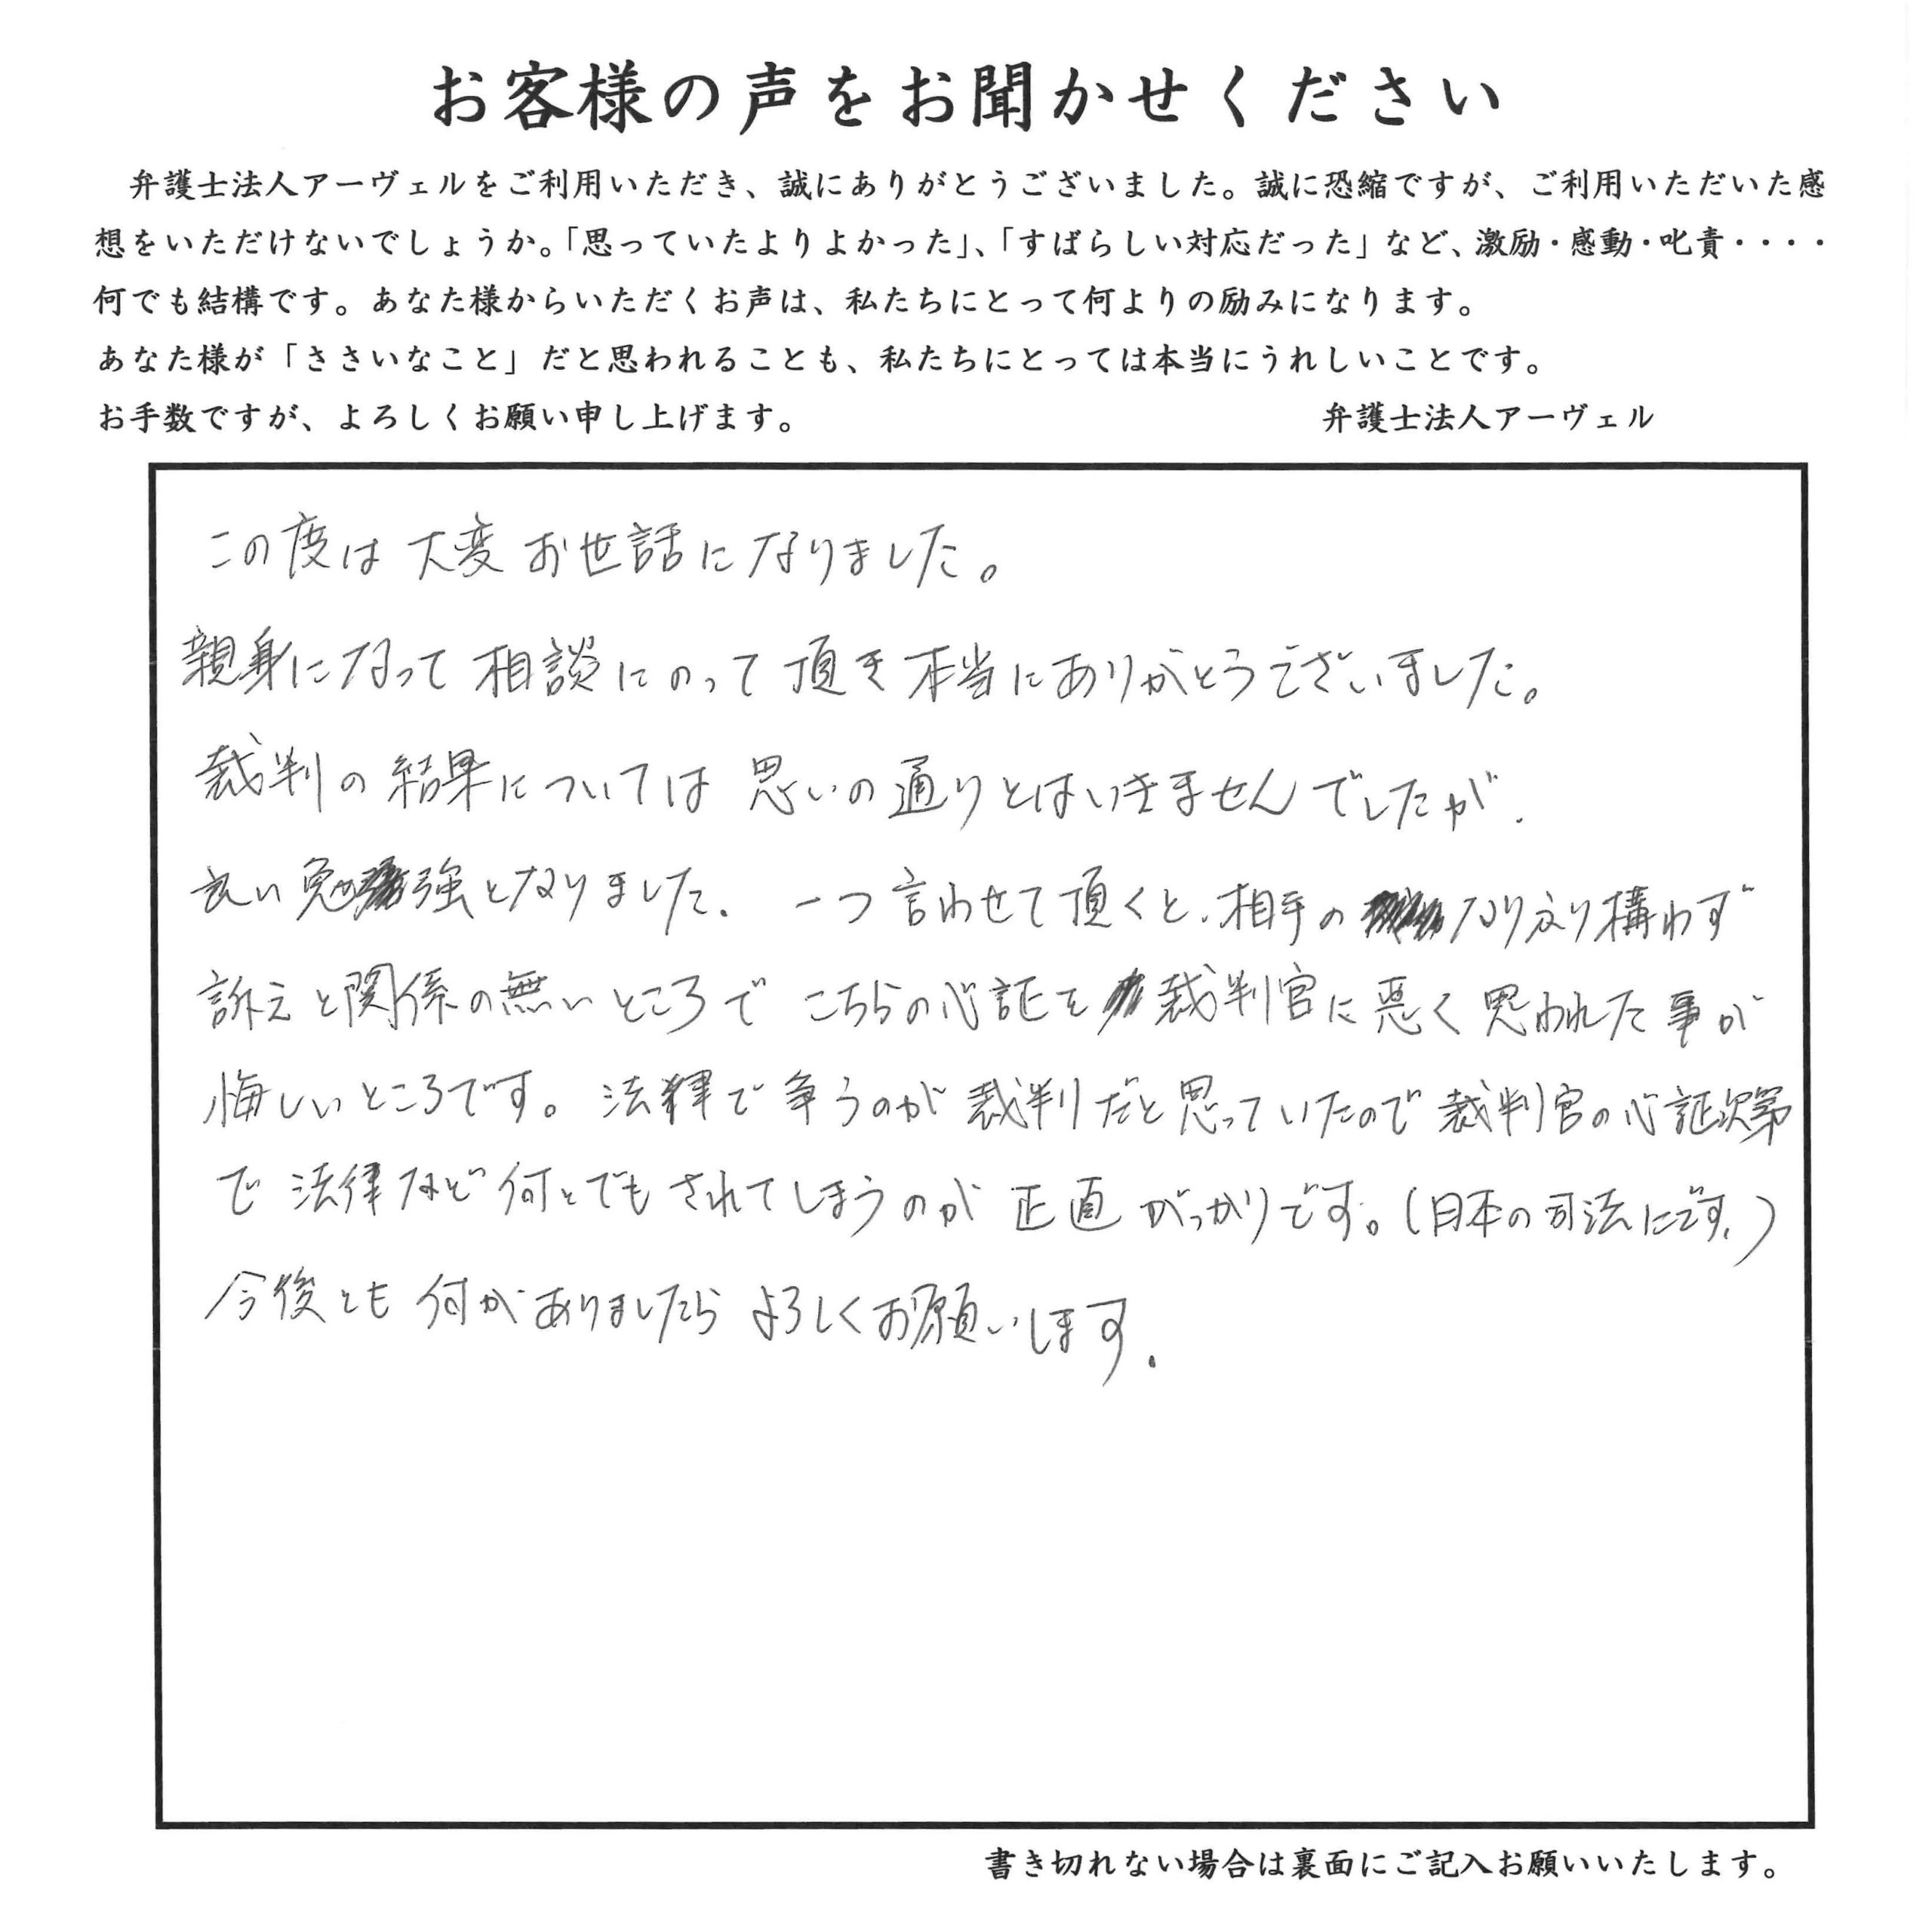 お客様の声をお聞かせください
弁護士法人アーヴェルをご利用いただき、誠にありがとうございました。誠に恐縮ですが、ご利用いただいた感
想をいただけないでしょうか。「思っていたよりよかった」、「すばらしい対応だった」など、激励・感動・叱責・・・・
何でも結構です。あなた様からいただくお声は、私たちにとって何よりの励みになります。
あなた様が「ささいなこと」だと思われることも、私たちにとっては本当にうれしいことです。
お手数ですが、よろしくお願い申し上げます。 弁護士法人アーヴェル
この度は大変お世話になりました。
親身になって相談にのって頂き本当にありがとうございました。
裁判の結果については思いの通りとはいきませんでしたが、
良い勉強となりました。一つ言わせて頂くと、相手のなりふり構わず
訴えと関係の無いところでこちらの心証を裁判官に悪く思われた事が
悔しいところです。法律で争うのが裁判だと思っていたので裁判官の心証次第
で法律など何とでもされてしまうのが正直がっかりです。(日本の司法にです。)
今後とも何かありましたらよろしくお願いします。
書き切れない場合は裏面にご記入お願いいたします。